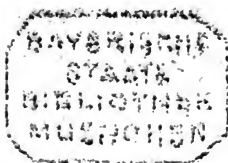 BAYERISCHE
STAATS
BIBLIOTHEK
MUENCHEN